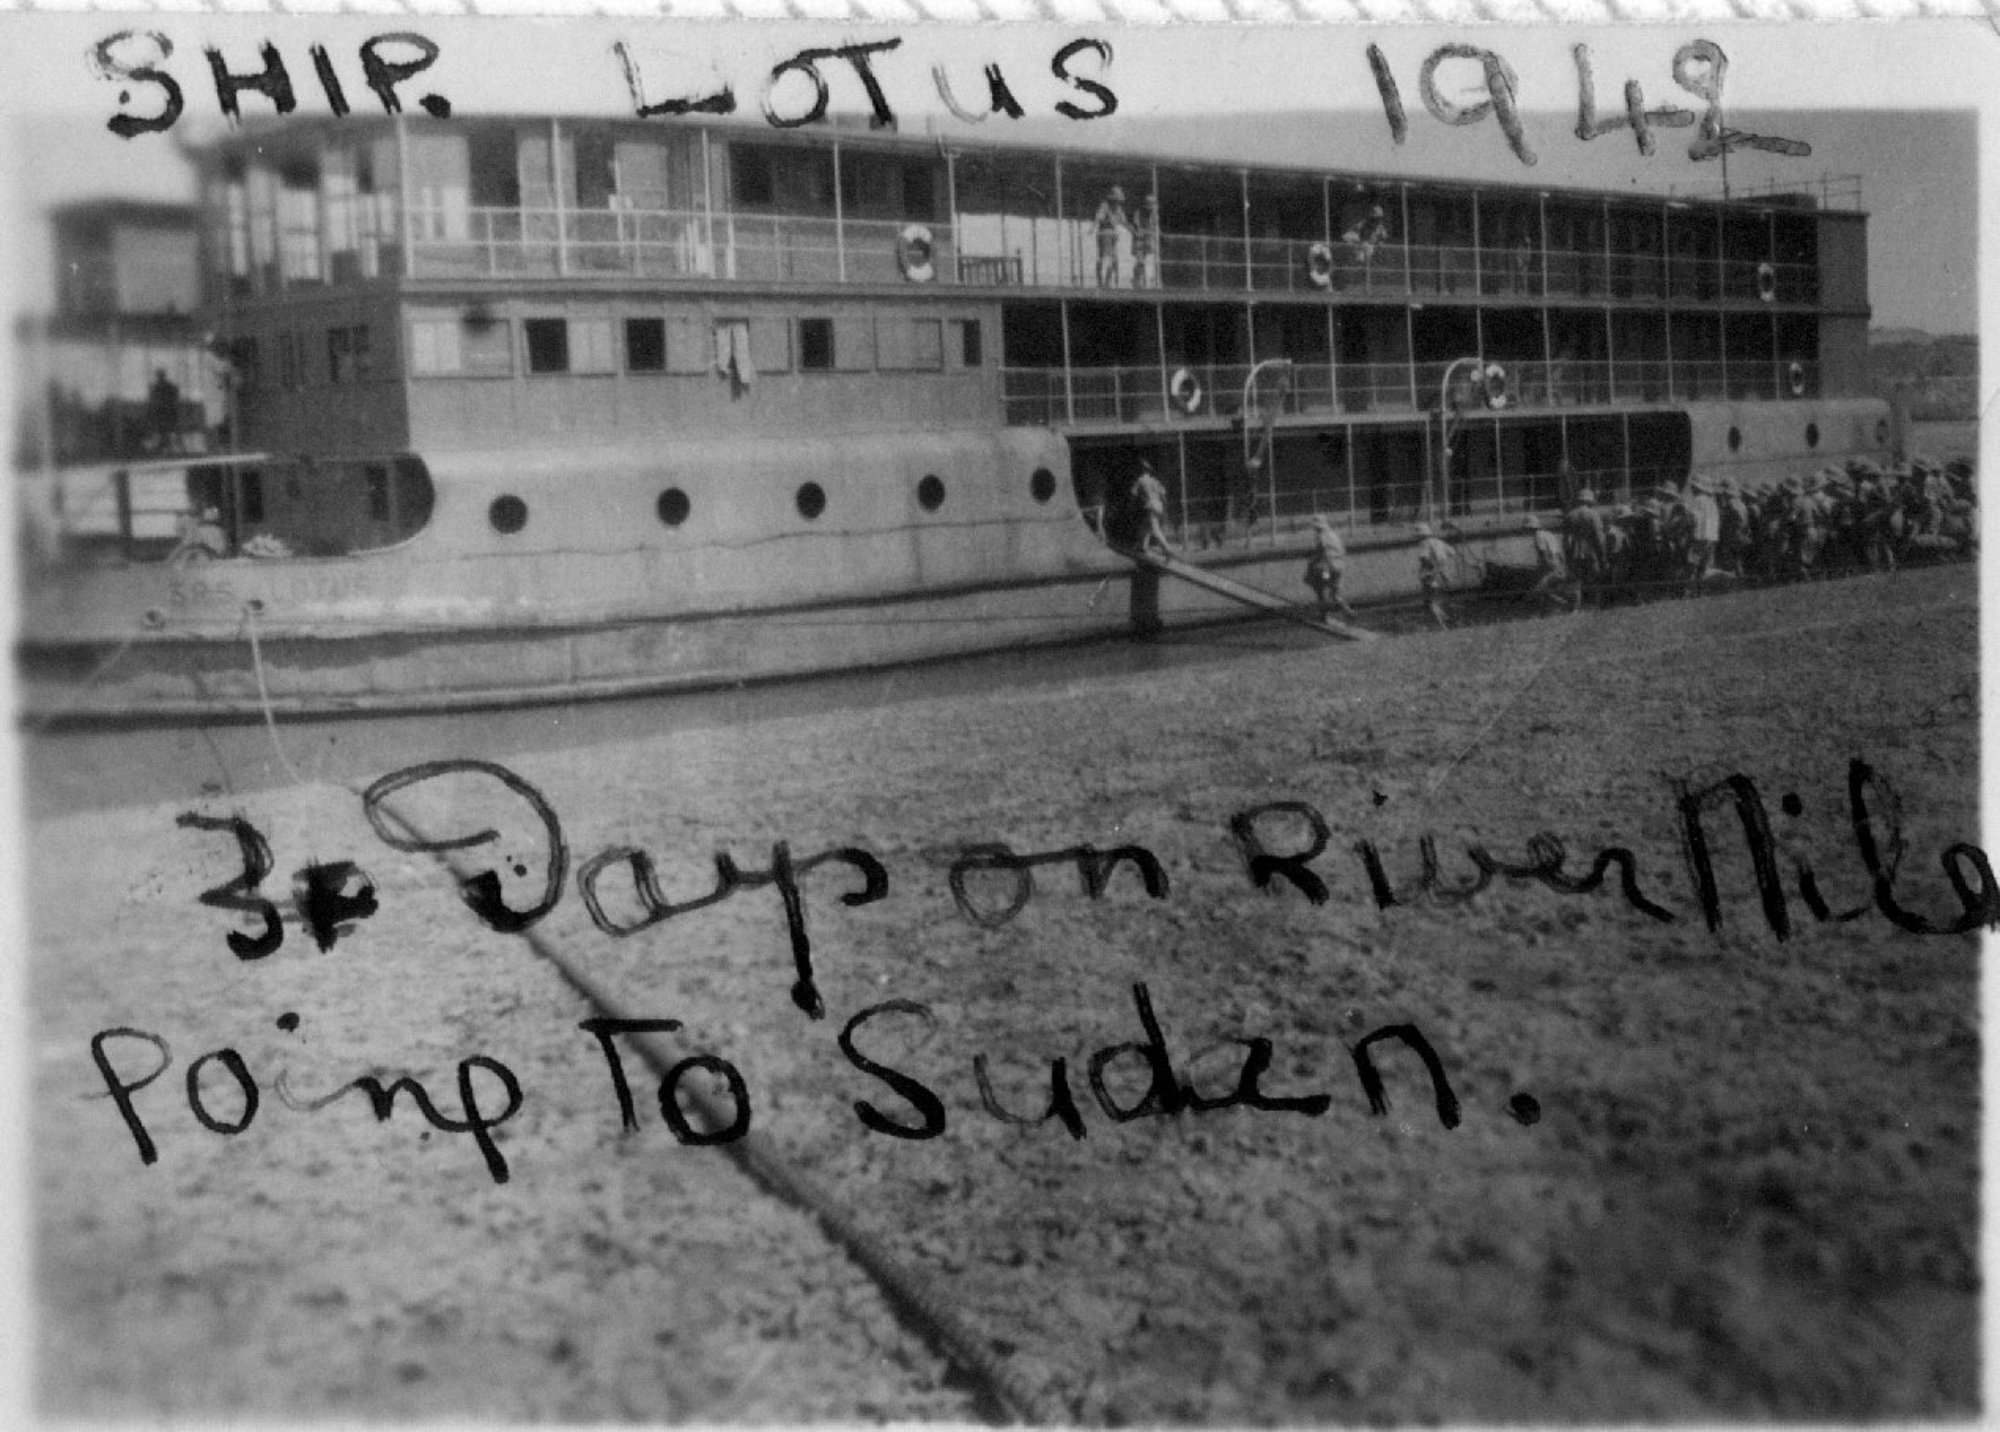 SHIP. LOTUS 1942
LOTUS
3 Days on River Nile
Going To Sudan.